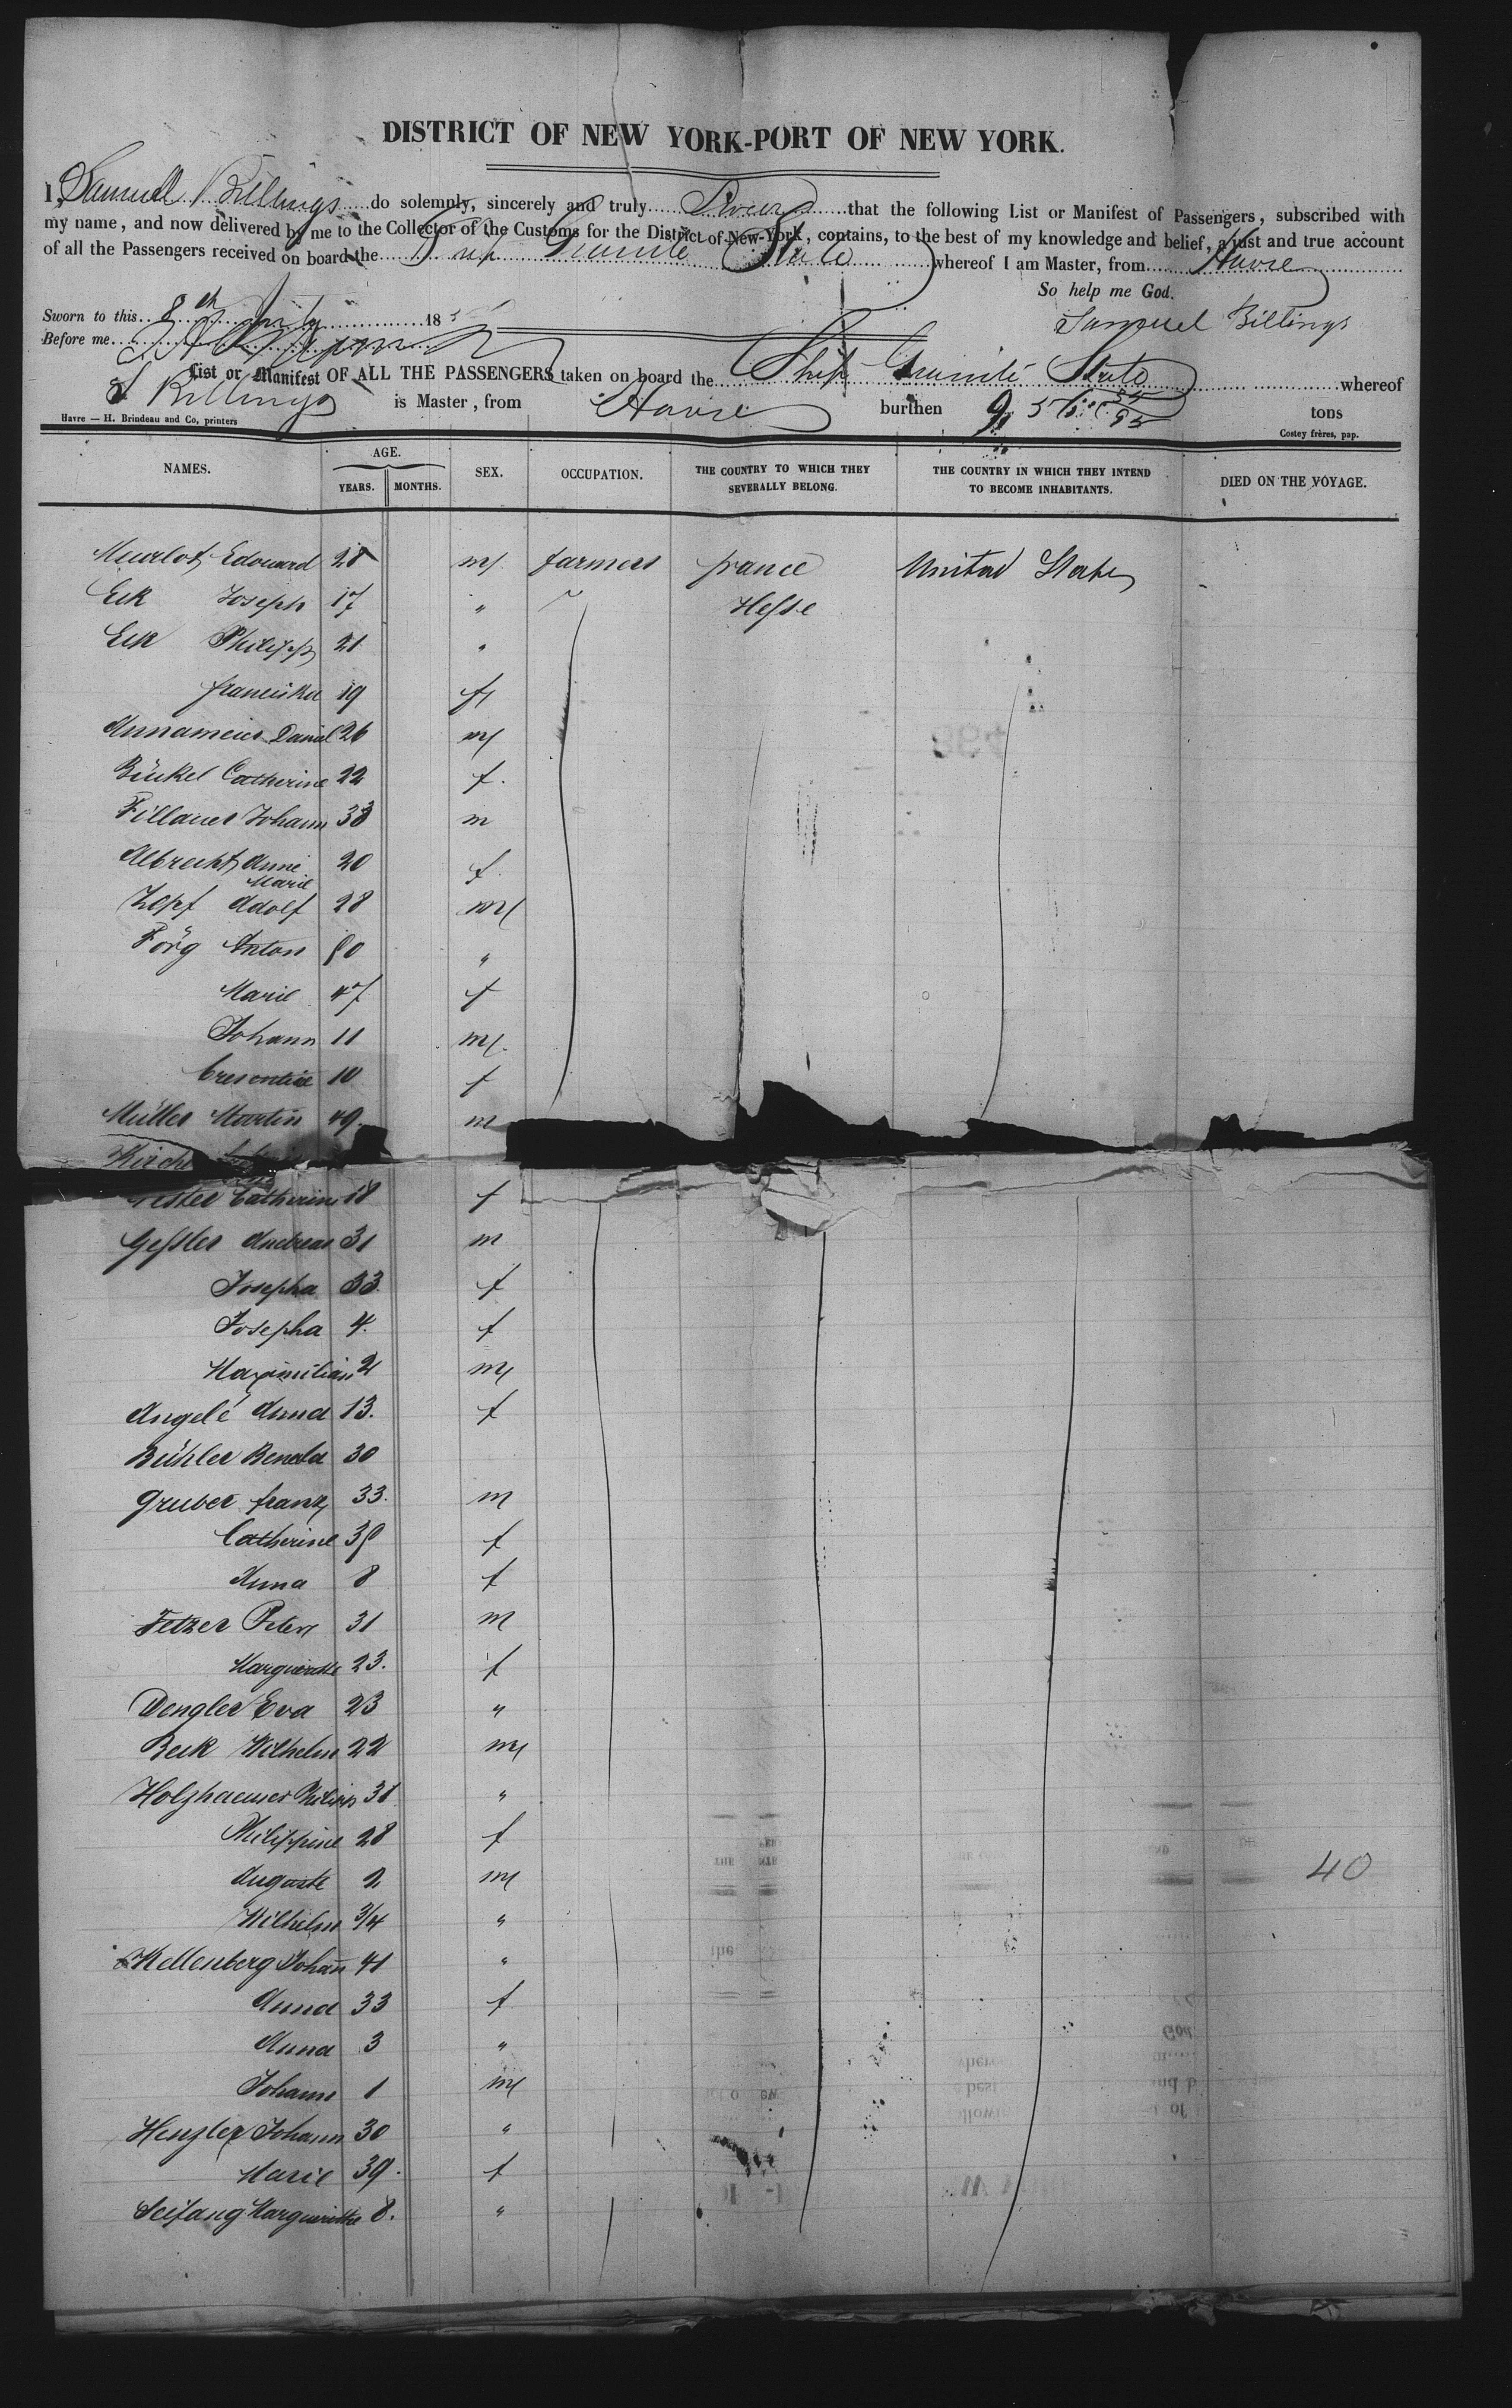 DISTRICT OF NEW YORK-PORT OF NEW YORK.
I, Samuel Billings do solemnly, sincerely and truly Swear that the following List or Manifest of Passengers, subscribed with
my name, and now delivered by me to the Collector of the Customs for the District of New-York, contains, to the best of my knowledge and belief, a just and true account
of all the Passengers received on board the Ship Granite State whereof I am Master, from Havre
So help me God.
Sworn to this 8th July 185
Samuel Billings
Before me
List or Manifest OF ALL THE PASSENGERS taken on board the Ship Granite State whereof
S Billings is Master, from Havre burthen tons
Havre — H. Brindeau and Co, printers
Costey frères, pap.
NAMES. AGE. YEARS. MONTHS. SEX. OCCUPATION. THE COUNTRY TO WHICH THEY SEVERALLY BELONG. THE COUNTRY IN WHICH THEY INTEND TO BECOME INHABITANTS. DIED ON THE VOYAGE.
Murlot Edouard 28 m farmers france United States
Eck Joseph 17 " Hesse
Eck Philipp 21 "
franciska 19 f
Annameier Daniel 26 m
Bückel Catherine 22 f.
Fillauer Johann 33 m
Albrecht Anne Marie 20 f.
Zopf Adolf 28 m
Förg Anton 50 "
Marie 47 f
Johann 11 m.
Crescentia 10 f
Müller Martin 49. m
Kirch
Catherine 18 f
Gessler Andreas 31 m
Josepha 33. f
Josepha 4. f
Maximilian 2 m
Angelé Anna 13. f
Bühler Beneda 30
Gruber franz 33. m
Catherine 35 f
Anna 8 f
Fetzer Peter 31 m
Marguerite 23. f
Dengler Eva 23 "
Beck Wilhelm 22 m
Holzhaeuser Philipp 31 "
Philippine 28 f
Auguste 2 m
Wilhelm 3/4 "
Kellenberg Johann 41 "
Anna 33 f
Anna 3 "
Johann 1 m
Henzler Johann 30 "
Marie 39. f
Seifang Marguerithe 8. "
40